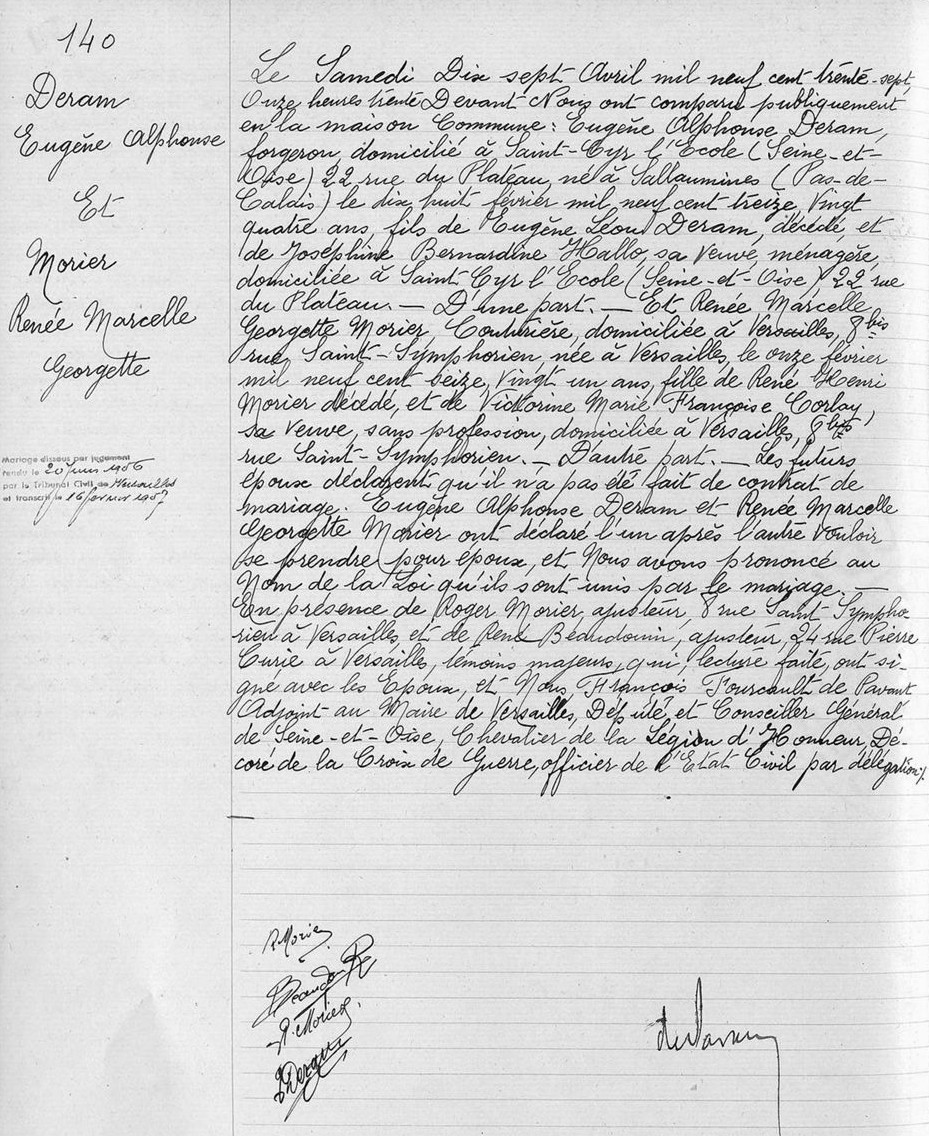 140
Deram
Eugène Alphonse
Et
Morier
Renée Marcelle
Georgette
Mariage dissous par jugement
rendu le 20 juin 1956
par le Tribunal Civil de Versailles
et transcrit le 16 janvier 1957
Le Samedi Dix sept Avril mil neuf cent trente-sept,
Onze heures trente Devant Nous ont comparu publiquement
en la maison Commune: Eugène Alphonse Deram,
forgeron, domicilié à Saint-Cyr l'Ecole (Seine-et-
Oise) 22 rue du Plateau, né à Sallaumines (Pas-de-
Calais) le dix huit février mil neuf cent treize, Vingt
quatre ans, fils de Eugène Léon Deram, décédé, et
de Joséphine Bernardine Hallo, sa veuve, ménagère,
domiciliée à Saint-Cyr l'Ecole (Seine-et-Oise) 22 rue
du Plateau. — D'une part. — Et Renée Marcelle
Georgette Morier Couturière, domiciliée à Versailles, 8 bis
rue Saint-Symphorien, née à Versailles, le onze février
mil neuf cent seize, Vingt un ans, fille de René Henri
Morier décédé, et de Victorine Marie Françoise Corlay,
sa Veuve, sans profession, domiciliée à Versailles, 8 bis
rue Saint-Symphorien. — D'autre part. — Les futurs
époux déclarent qu'il n'a pas été fait de contrat de
mariage. Eugène Alphonse Deram et Renée Marcelle
Georgette Morier ont déclaré l'un après l'autre Vouloir
se prendre pour époux, et Nous avons prononcé au
Nom de la Loi qu'ils sont unis par le mariage. —
En présence de Roger Morier, ajusteur, 8 rue Saint-Sympho
rien à Versailles, et de René Beaudouin, ajusteur, 24 rue Pierre
Curie à Versailles, témoins majeurs, qui, lecture faite, ont si-
gné avec les Epoux, et Nous, François Fourcault de Pavant
Adjoint au Maire de Versailles, Député, et Conseiller Général
de Seine-et-Oise, Chevalier de la Légion d'Honneur, Dé-
coré de la Croix de Guerre, officier de l'Etat Civil par délégation.
R Morier
R. Morier
Deram
de Pavant